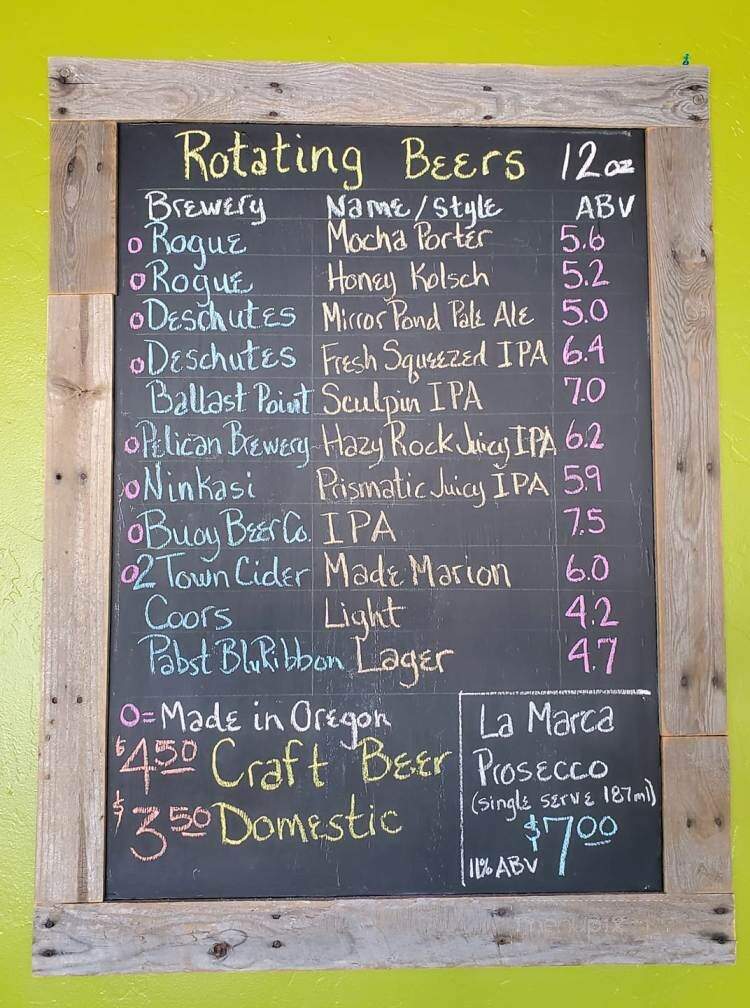 Rotating Beers 12 oz
Brewery Name/Style ABV
o Rogue Mocha Porter 5.6
o Rogue Honey Kolsch 5.2
o Deschutes Mirror Pond Pale Ale 5.0
o Deschutes Fresh Squeezed IPA 6.4
Ballast Point Sculpin IPA 7.0
o Pelican Brewery Hazy Rock Juicy IPA 6.2
o Ninkasi Prismatic Juicy IPA 5.9
o Buoy Beer Co. IPA 7.5
o 2 Town Cider Made Marion 6.0
Coors Light 4.2
Pabst Blu Ribbon Lager 4.7
O = Made in Oregon
$4.50 Craft Beer
$3.50 Domestic
La Marca
Prosecco
(single serve 187ml)
$7.00
11% ABV
menupix